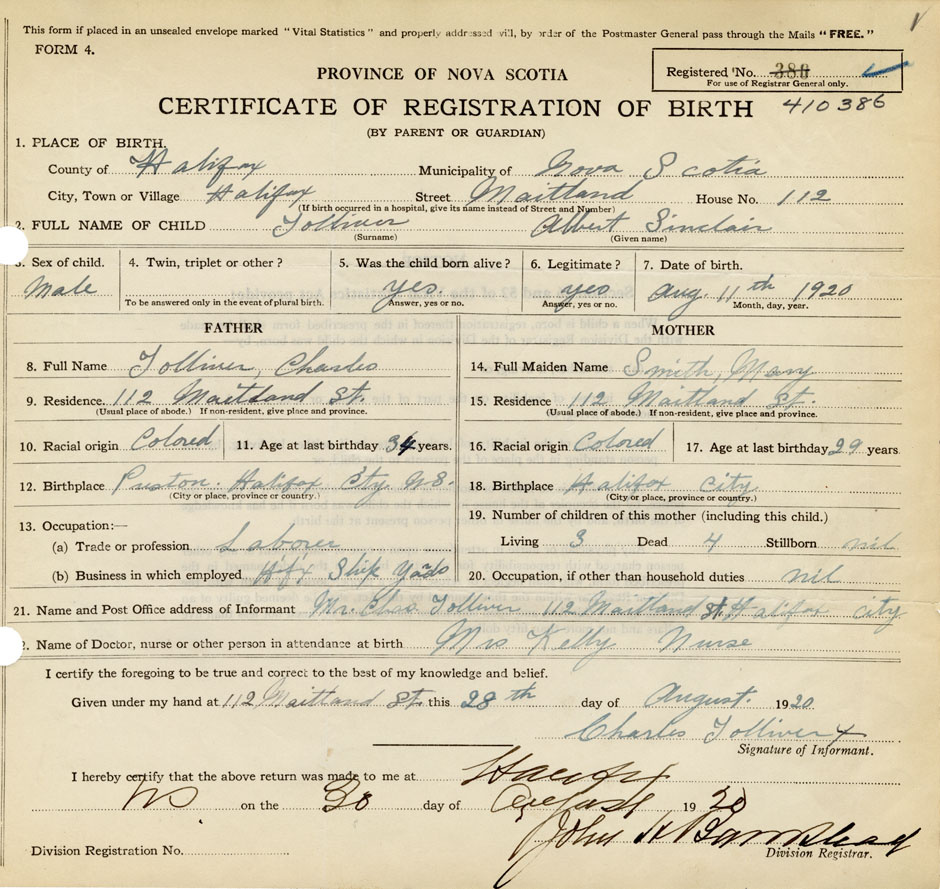 This form if placed in an unsealed envelope marked "Vital Statistics" and properly addressed will, by order of the Postmaster General pass through the Mails "FREE."
FORM 4.
PROVINCE OF NOVA SCOTIA
Registered No. 380
For use of Registrar General only.
CERTIFICATE OF REGISTRATION OF BIRTH 410386
(BY PARENT OR GUARDIAN)
1. PLACE OF BIRTH.
County of Halifax Municipality of Nova Scotia
City, Town or Village Halifax Street Maitland House No. 112
(If birth occurred in a hospital, give its name instead of Street and Number)
2. FULL NAME OF CHILD Tolliver Albert Sinclair
(Surname) (Given name)
3. Sex of child. 4. Twin, triplet or other? 5. Was the child born alive? 6. Legitimate? 7. Date of birth.
Male yes. yes Aug. 11th 1920
To be answered only in the event of plural birth. Answer, yes or no. Answer, yes or no. Month, day, year.
FATHER MOTHER
8. Full Name Tolliver, Charles 14. Full Maiden Name Smith, Mary
9. Residence. 112 Maitland St. 15. Residence 112 Maitland St.
(Usual place of abode.) If non-resident, give place and province. (Usual place of abode.) If non-resident, give place and province.
10. Racial origin Colored 11. Age at last birthday 34 years. 16. Racial origin Colored 17. Age at last birthday 29 years
12. Birthplace Preston. Halifax City N.S. 18. Birthplace Halifax City
(City or place, province or country.) (City or place, province or country.)
13. Occupation:— 19. Number of children of this mother (including this child.)
(a) Trade or profession Laborer Living 3 Dead 4 Stillborn nil
(b) Business in which employed Hfx Ship Yards 20. Occupation, if other than household duties nil
21. Name and Post Office address of Informant Mr. Chas. Tolliver 112 Maitland St. Halifax City
2. Name of Doctor, nurse or other person in attendance at birth Mrs Kelly Nurse
I certify the foregoing to be true and correct to the best of my knowledge and belief.
Given under my hand at 112 Maitland St. this 28th day of August. 1920.
Charles Tolliver x
Signature of Informant.
I hereby certify that the above return was made to me at Halifax
NS on the 30 day of August 1920
John A
Division Registration No. Division Registrar.